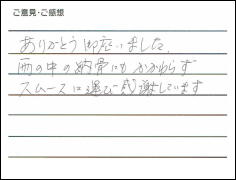 ご意見・ご感想
ありがとう御座いました。
雨の中の納骨にもかかわらず
スムースに運び感謝しています